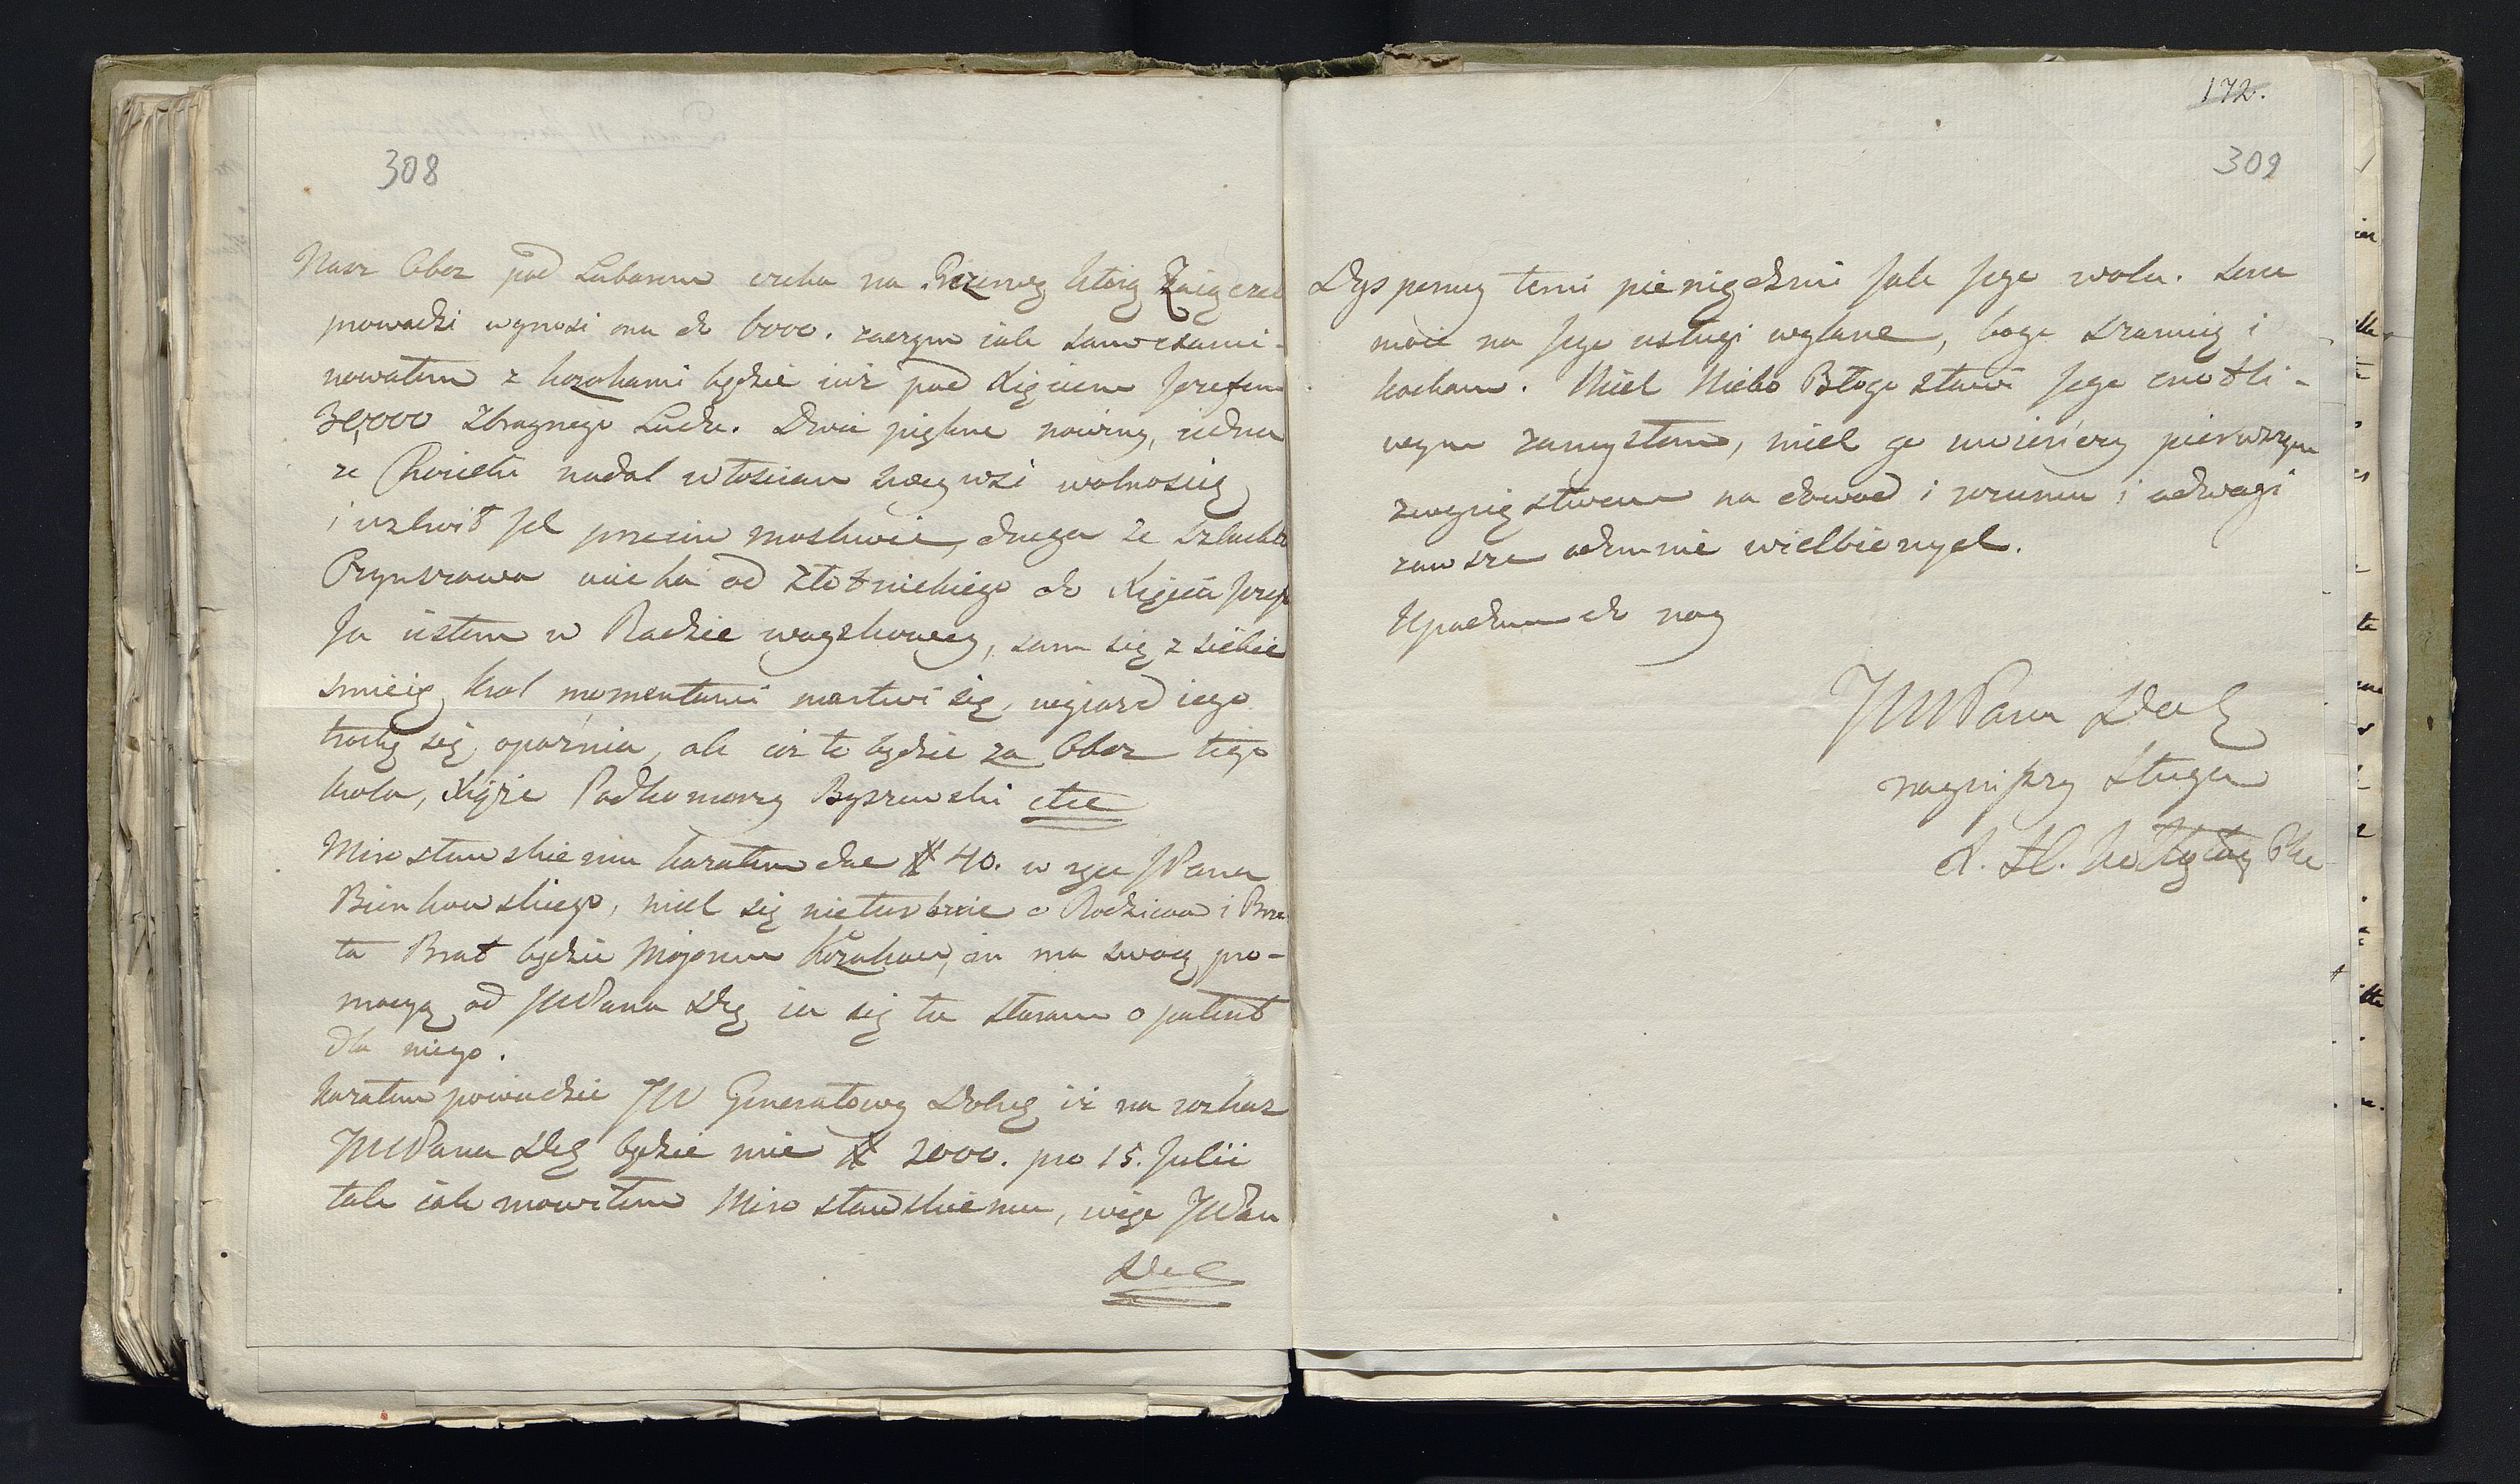 308
Nasz Oboz pod Lubarem czeka na Rezerwę ktorą Zaiączek
prowadzi wynosi ona do 6000. zaczym iak sam exami-
nowałem z kozakami będzie iuż pod Xięciem Jozefem
30,000 Zbroynego Ludu. Dwie piękne nowiny, iedna
ze Chwieta nadal włościan swey wsi wolnością
i uzbroił ich przeciw moskwie, druga że szlachta
Czynszowa ucieka od Złotnickiego do Xięcia Jozefa
Ja iestem w Radzie woyskowey, sam się z siebie
smieię, Krol momentami martwi się, wyiazd iego
trochę się opoźnia, ale coż to będzie za Oboz tego
krola, Xiąże Podkomorzy Byszewski etc
Mirosławskiemu kazałem dać # 40. w ręce JPana
Bienkowskiego, niech się nieturbuie o Rodzicow i Bra
ta Brat będzie Majorem Kozakow, on ma swoią pro-
mocyą od JWPana Dbr ia się tu staram o patent
dla niego.
Kazałem powiedzieć JW Generałowy Dolską iż na rozkaz
JWPana Dbr będzie mieć # 2000. pro 15. Julii
tak iak mowiłem Mirosławskiemu, więc JWPan
Dbr
172.
309
Dysponuy temi pieniędzmi Jak Jego wola. Serce
moie na Jego usługi wylane, bo go szanuię i
kocham. Niech Niebo Błogosławi Jego cnotli-
wym zamysłom, niech go uwieńczy pierwszym
zwycięstwem na dowod i rozumu i odwagi
zawsze odemnie wielbionych.
Upadam do nog
JWPana Dob
nayniższy Sługa
X. H. Kołłątay Pke